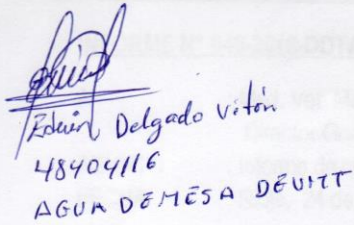 Edwin Delgado Vitón
48404116
AGUA DEMESA DEUMT